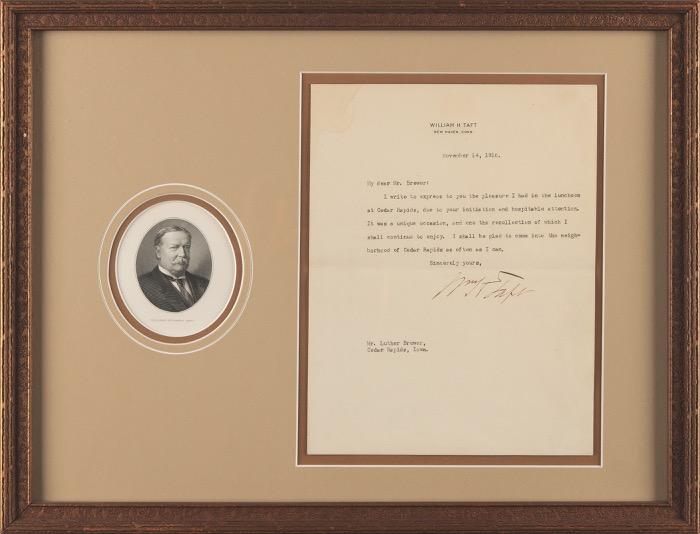 WILLIAM H TAFT
NEW HAVEN, CONN
November 14, 1916.
My dear Mr. Brewer:
I write to express to you the pleasure I had in the luncheon
at Cedar Rapids, due to your initiation and hospitable attention.
It was a unique occasion, and one the recollection of which I
shall continue to enjoy. I shall be glad to come into the neigh-
borhood of Cedar Rapids as often as I can.
Sincerely yours,
Wm H Taft
Mr. Luther Brewer,
Cedar Rapids, Iowa.